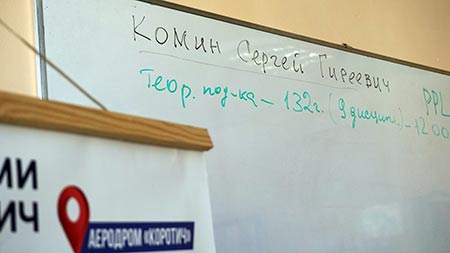 Комин Сергей Гиреевич
PPL
Теор. под-ка – 132г. (9 дисципл.) – 1200
МИ
ИЧ
АЕРОДРОМ «КОРОТИЧ»